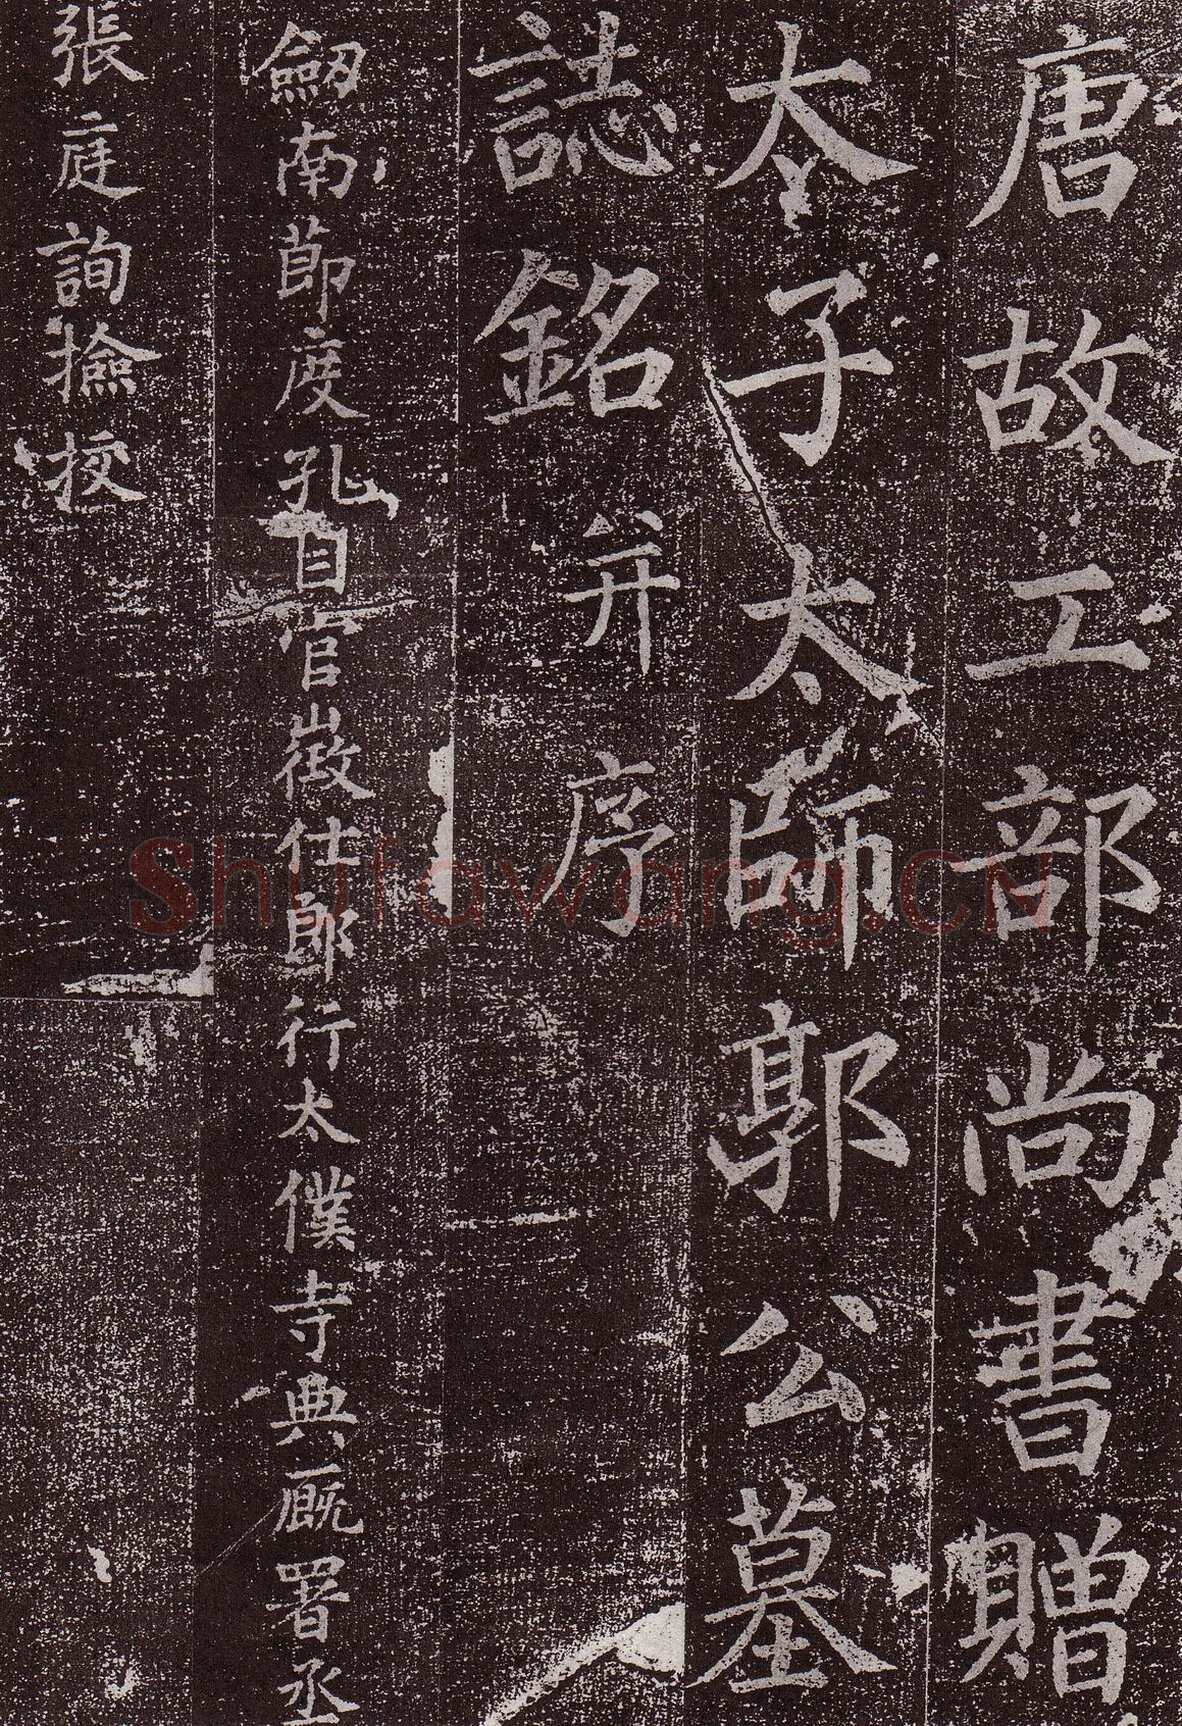 唐故工部尚書贈
太子太師郭公墓
誌銘并序
劒南節度孔目官徵仕郎行太僕寺典廐署丞
張庭詢撿挍
Shufawang.CN